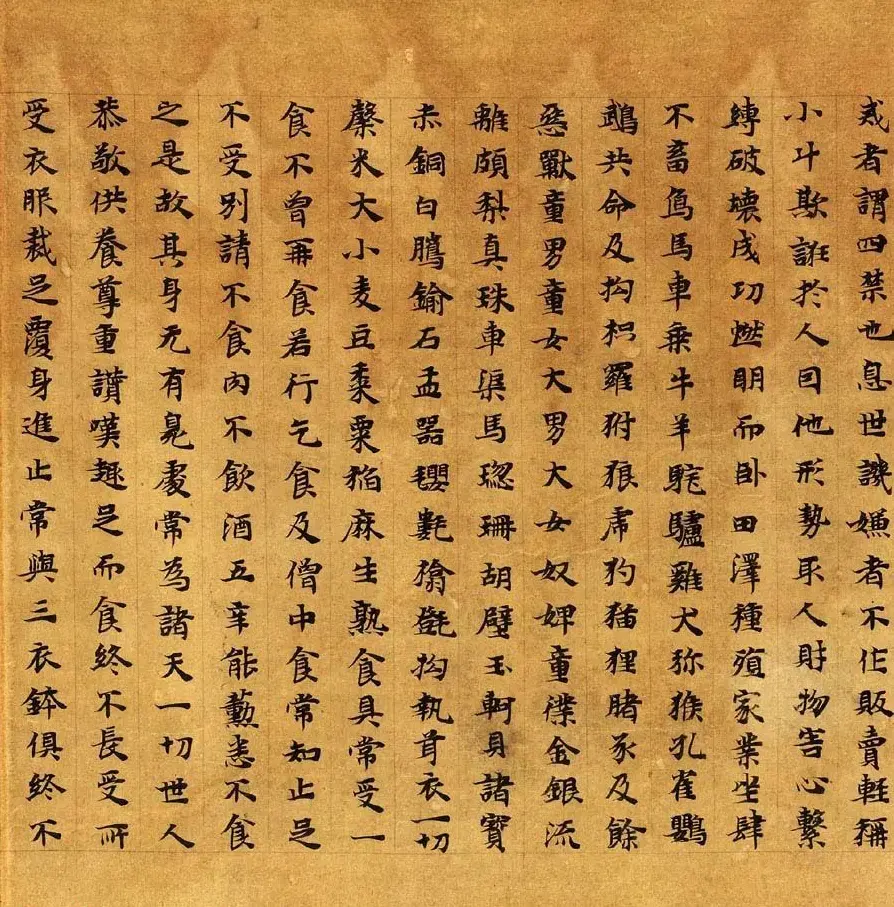 戒者謂四禁也息世譏嫌者不作販賣輕稱
小斗欺誑於人因他形勢取人財物害心繫
縛破壞成功燃明而卧田澤種殖家業坐肆
不畜象馬車乘牛羊駝驢雞犬獼猴孔雀鸚
鵡共命及拘枳羅豺狼虎豹猫狸猪豕及餘
惡獸童男童女大男大女奴婢童僕金銀流
離頗梨真珠車渠馬瑙珊瑚璧玉軻貝諸寶
赤銅白鑞鍮石盂器拘執茸衣一切
穀米大小麦豆黍粟稻麻生熟食具常受一
食不曾再食若行乞食及僧中食常知止足
不受別請不食肉不飲酒五辛能薰悉不食
之是故其身无有臭處常為諸天一切世人
恭敬供養尊重讚嘆趣足而食終不長受所
受衣服裁足覆身進止常與三衣鉢俱終不